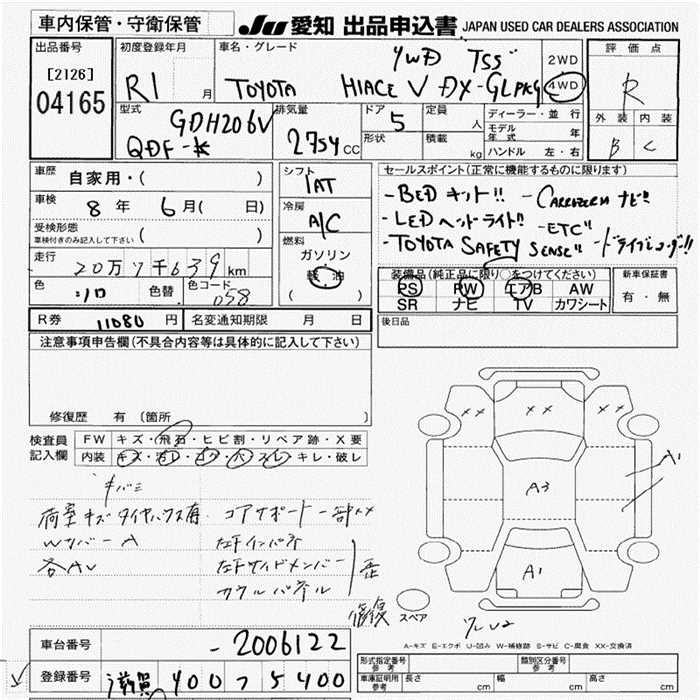 車内保管・守衛保管
JU 愛知 出品申込書 JAPAN USED CAR DEALERS ASSOCIATION
出品番号
[2126]
04165
初度登録年月
R1 月
車名・グレード
4WD TSS
TOYOTA HIACE V DX-GLPKG
2WD
4WD
評価点
R
外装 内装
B C
型式
GDH206V
QDF-
排気量
2754 CC
ドア
5
形状
定員
人
積載
kg
ディーラー・並行
モデル年式 年
ハンドル 左・右
車歴 自家用・( )
車検 8年 6月( 日)
受検形態
車検付きのみ記入して下さい ( )
走行 20万7千639km
色 シロ 色替 色コード 058
シフト
IAT
冷房
A/C
燃料
ガソリン
軽油
( )
セールスポイント(正常に機能するものに限ります)
-BED キット!! -CARROZZERIA ナビ!!
-LED ヘッドライト!! -ETC"
-TOYOTA SAFETY SENSE" -ドライブレコーダー!!
装備品(純正品に限り○をつけてください)
PS PW エアB AW
SR ナビ TV カワシート
新車保証書
有・無
R券 11080円 名変通知期限 月 日
後日品
注意事項申告欄(不具合内容等は具体的に記入して下さい)
修復歴 有 (箇所 )
検査員記入欄
FW キズ・飛石・ヒビ割・リペア跡・X要
内装 キズ・汚レ・コゲ・穴・スレ・キレ・破レ
キバミ
荷室キズ タイヤハウス有 コアサポート一部XX
Wリバー A 左Fインパネ
各AU 左Fサイドメンバー
カウルパネル
歪
修復
XX XX XX
A1
A3
A1
スペア
リレU2
A-キズ E-エクボ U-凹み W-補修跡 S-サビ C-腐食 XX-交換済
車台番号 -2006122
登録番号 滋賀 400 つ 5400
形式指定番号 参考
類別区分番号 参考
車庫証明用 参考 長さ cm 幅 cm 高さ cm